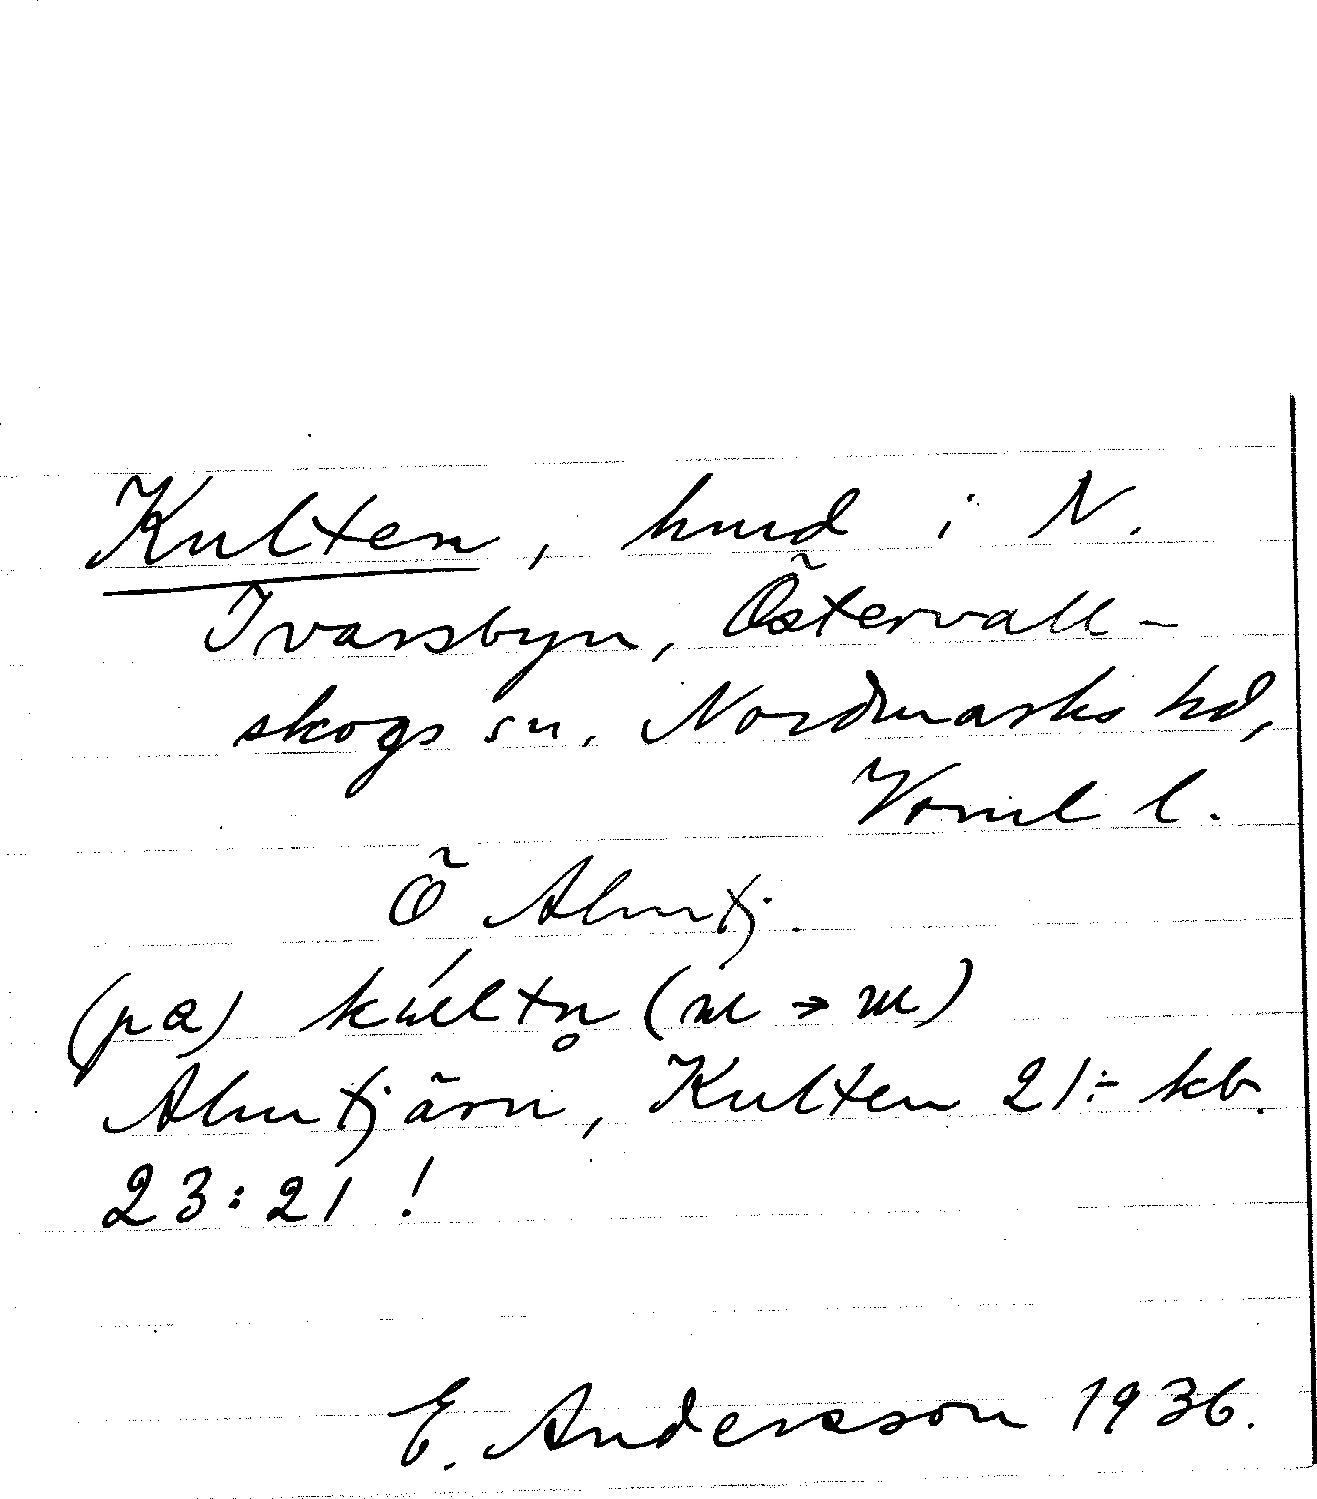 Kulten, hmd i N.
Ivarsbyn, Östervall-
skogs sn. Nordmarks hd,
Vrml l.
Ö Almtj.
(på)
Älmtjärn, Kulten 21:- kb.
23:21!
E. Andersson 1936.